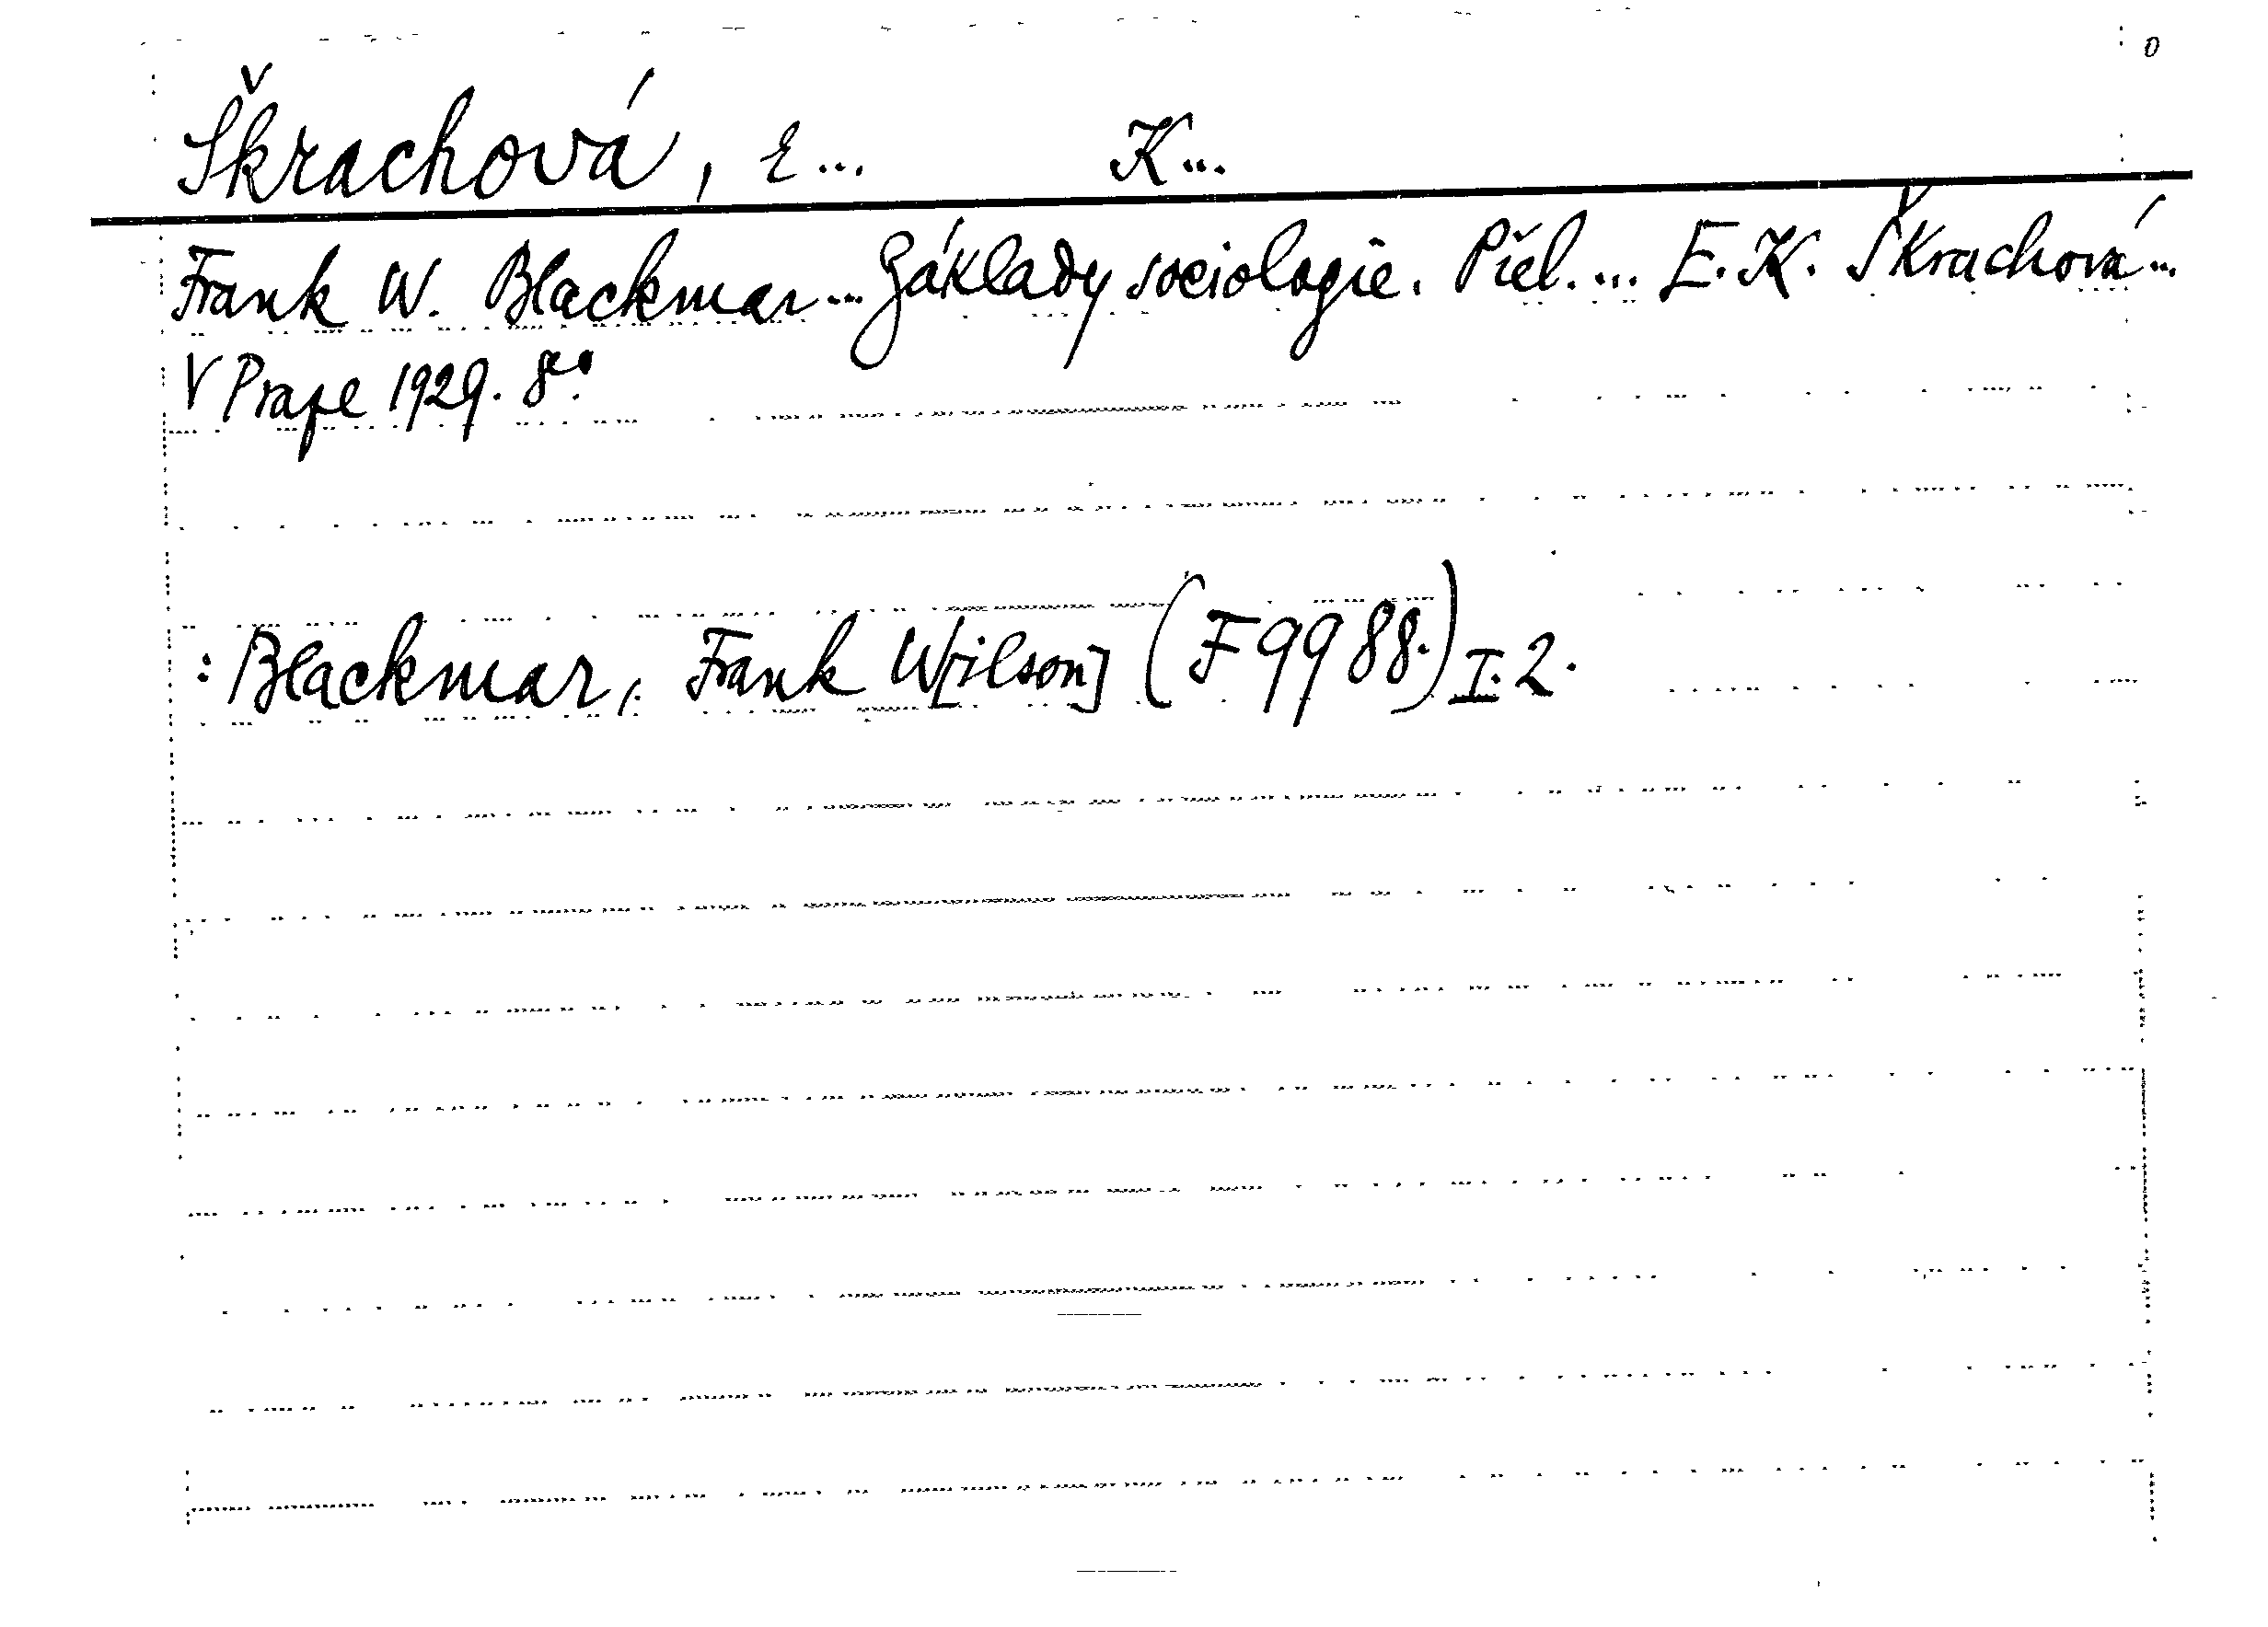 Škrachová, E... K...
Frank W. Blackmar... Základy sociologie. Přel. ... E. K. Škrachová...
V Praze 1929. 8°.
: Blackmar, Frank W[ilson] (F 9988.) I. 2.